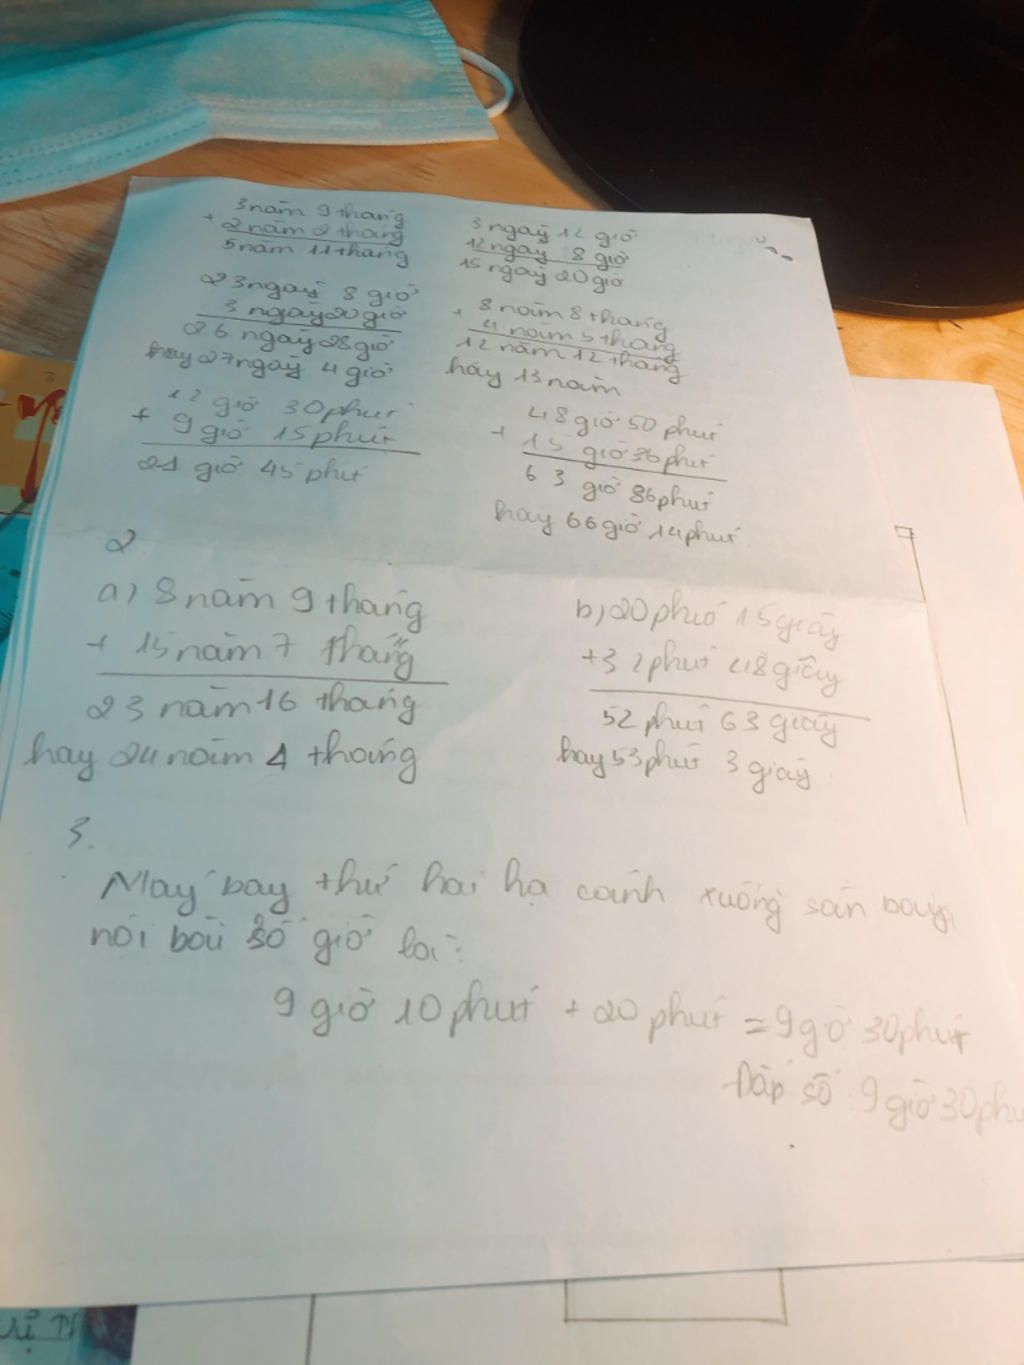 3 năm 9 tháng
+ 2 năm 2 tháng
5 năm 11 tháng
3 ngày 12 giờ
12 ngày 8 giờ
15 ngày 20 giờ
23 ngày 8 giờ
3 ngày 20 giờ
26 ngày 28 giờ
hay 27 ngày 4 giờ
8 năm 8 tháng
+ 4 năm 5 tháng
12 năm 12 tháng
hay 13 năm
12 giờ 30 phút
+ 9 giờ 15 phút
21 giờ 45 phút
48 giờ 50 phút
+ 15 giờ 36 phút
63 giờ 86 phút
hay 66 giờ 14 phút
2
a) 8 năm 9 tháng
+ 15 năm 7 tháng
23 năm 16 tháng
hay 24 năm 4 tháng
b) 20 phút 15 giây
+ 32 phút 48 giây
52 phút 63 giây
hay 53 phút 3 giây
3.
Máy bay thứ hai hạ cánh xuống sân bay
nội bài số giờ
9 giờ 10 phút + 20 phút = 9 gờ 30 phút
Đáp số 9 giờ 30 phú